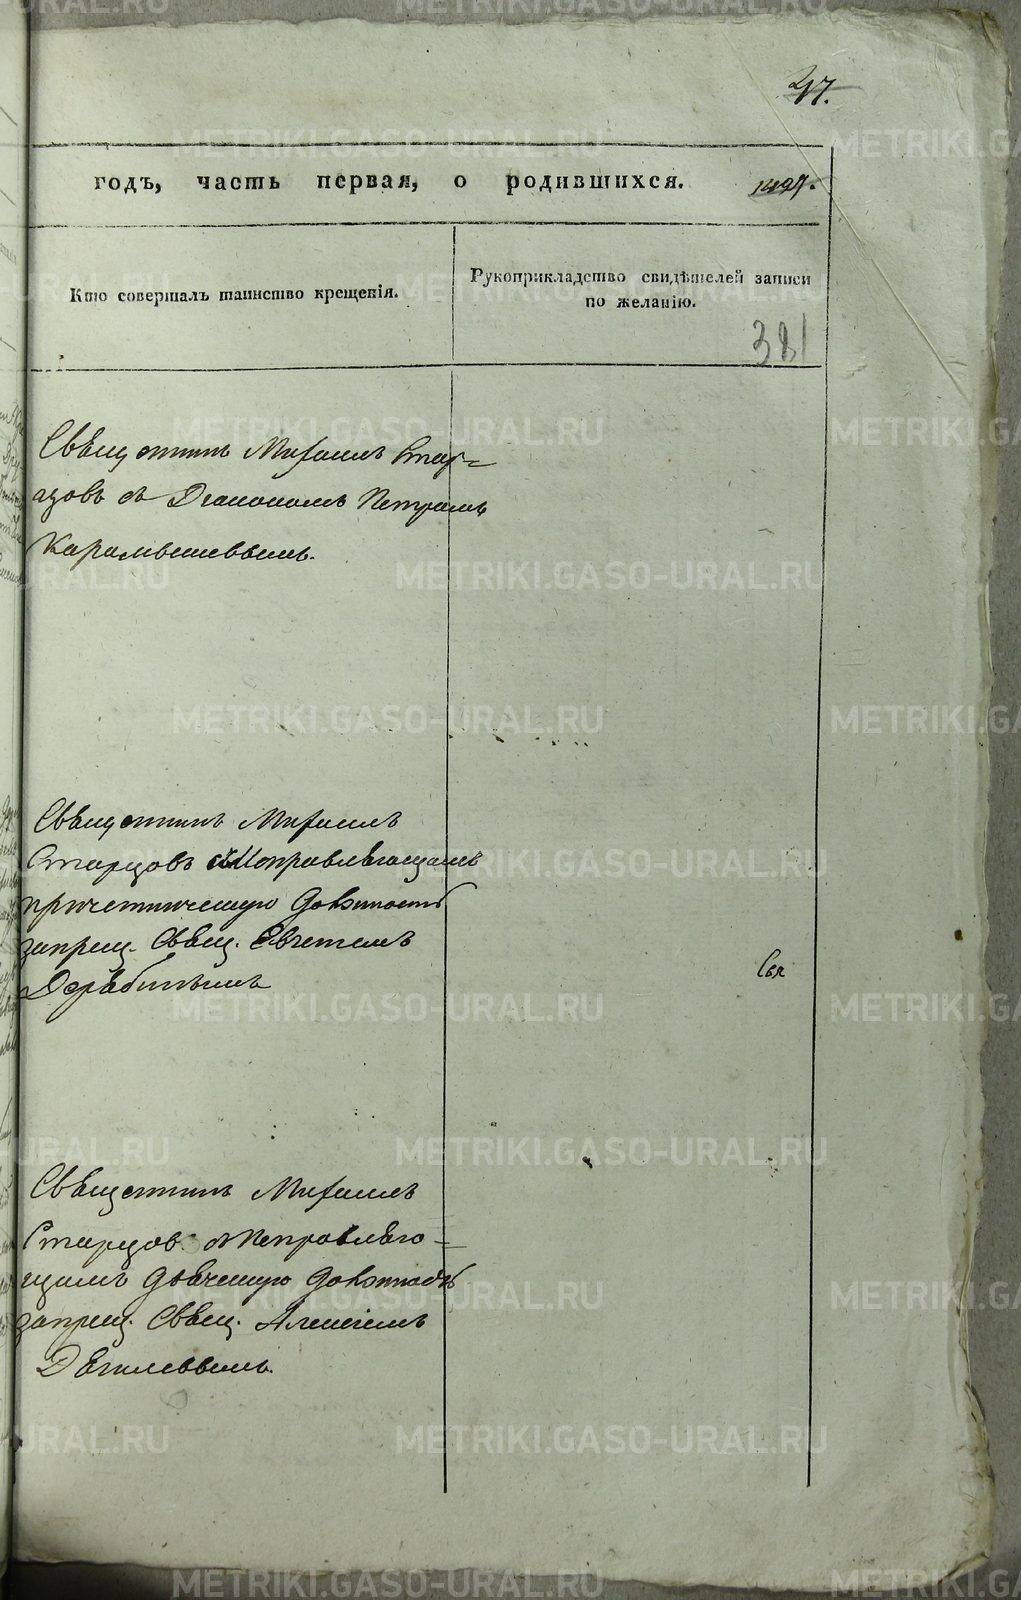 27.
годъ, часть первая, о родившихся.
Кто совершалъ таинство крещенія.
Рукоприкладство свидѣтелей записи
по желанію.
381
Свѣщенникъ Михаилъ Стар=
цовъ съ Діакономъ Петромъ
Карамышевымъ.
Свѣщенникъ Михаилъ
Старцовъ съ Исправлѣющимъ
причетническую должность
запрещ. Свѣщ.
Дерябинымъ
Свя
Свѣщенникъ Михаилъ
Старцовъ съ Исправлѣю=
щимъ должность
запрещ. Свѣщ. Алексіемъ
METRIKI.GASO-URAL.RU